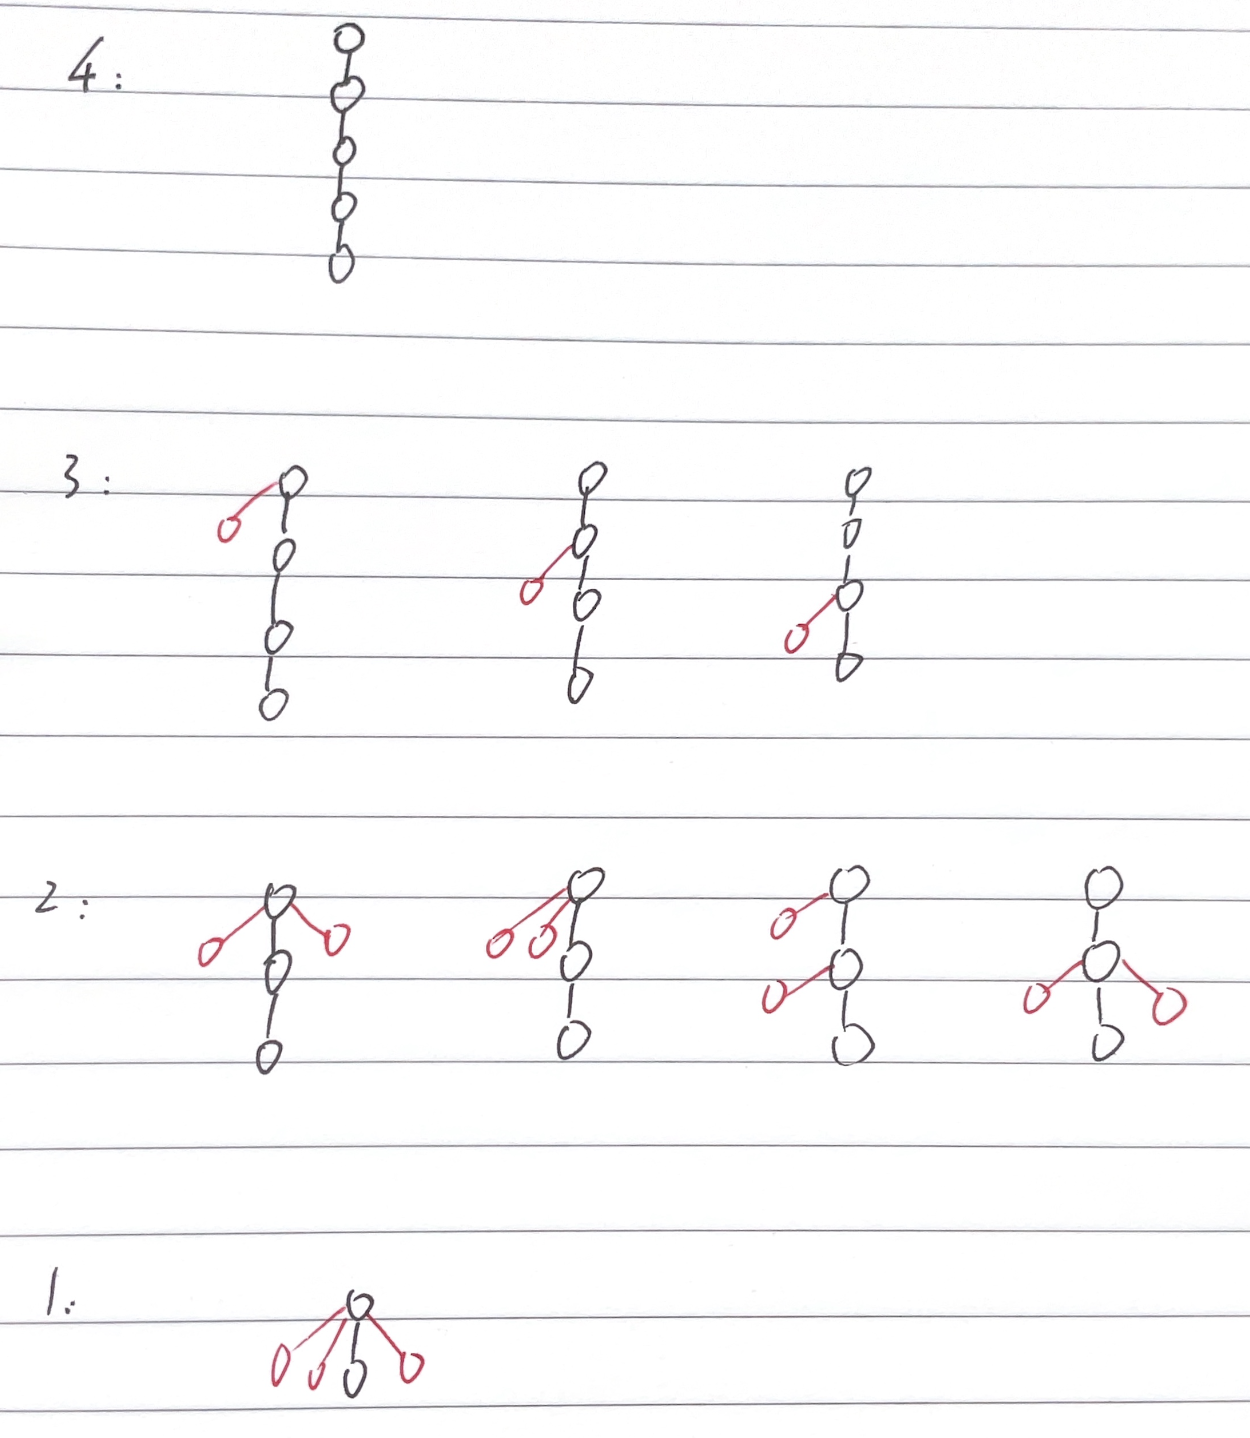 4:
3:
2:
1: